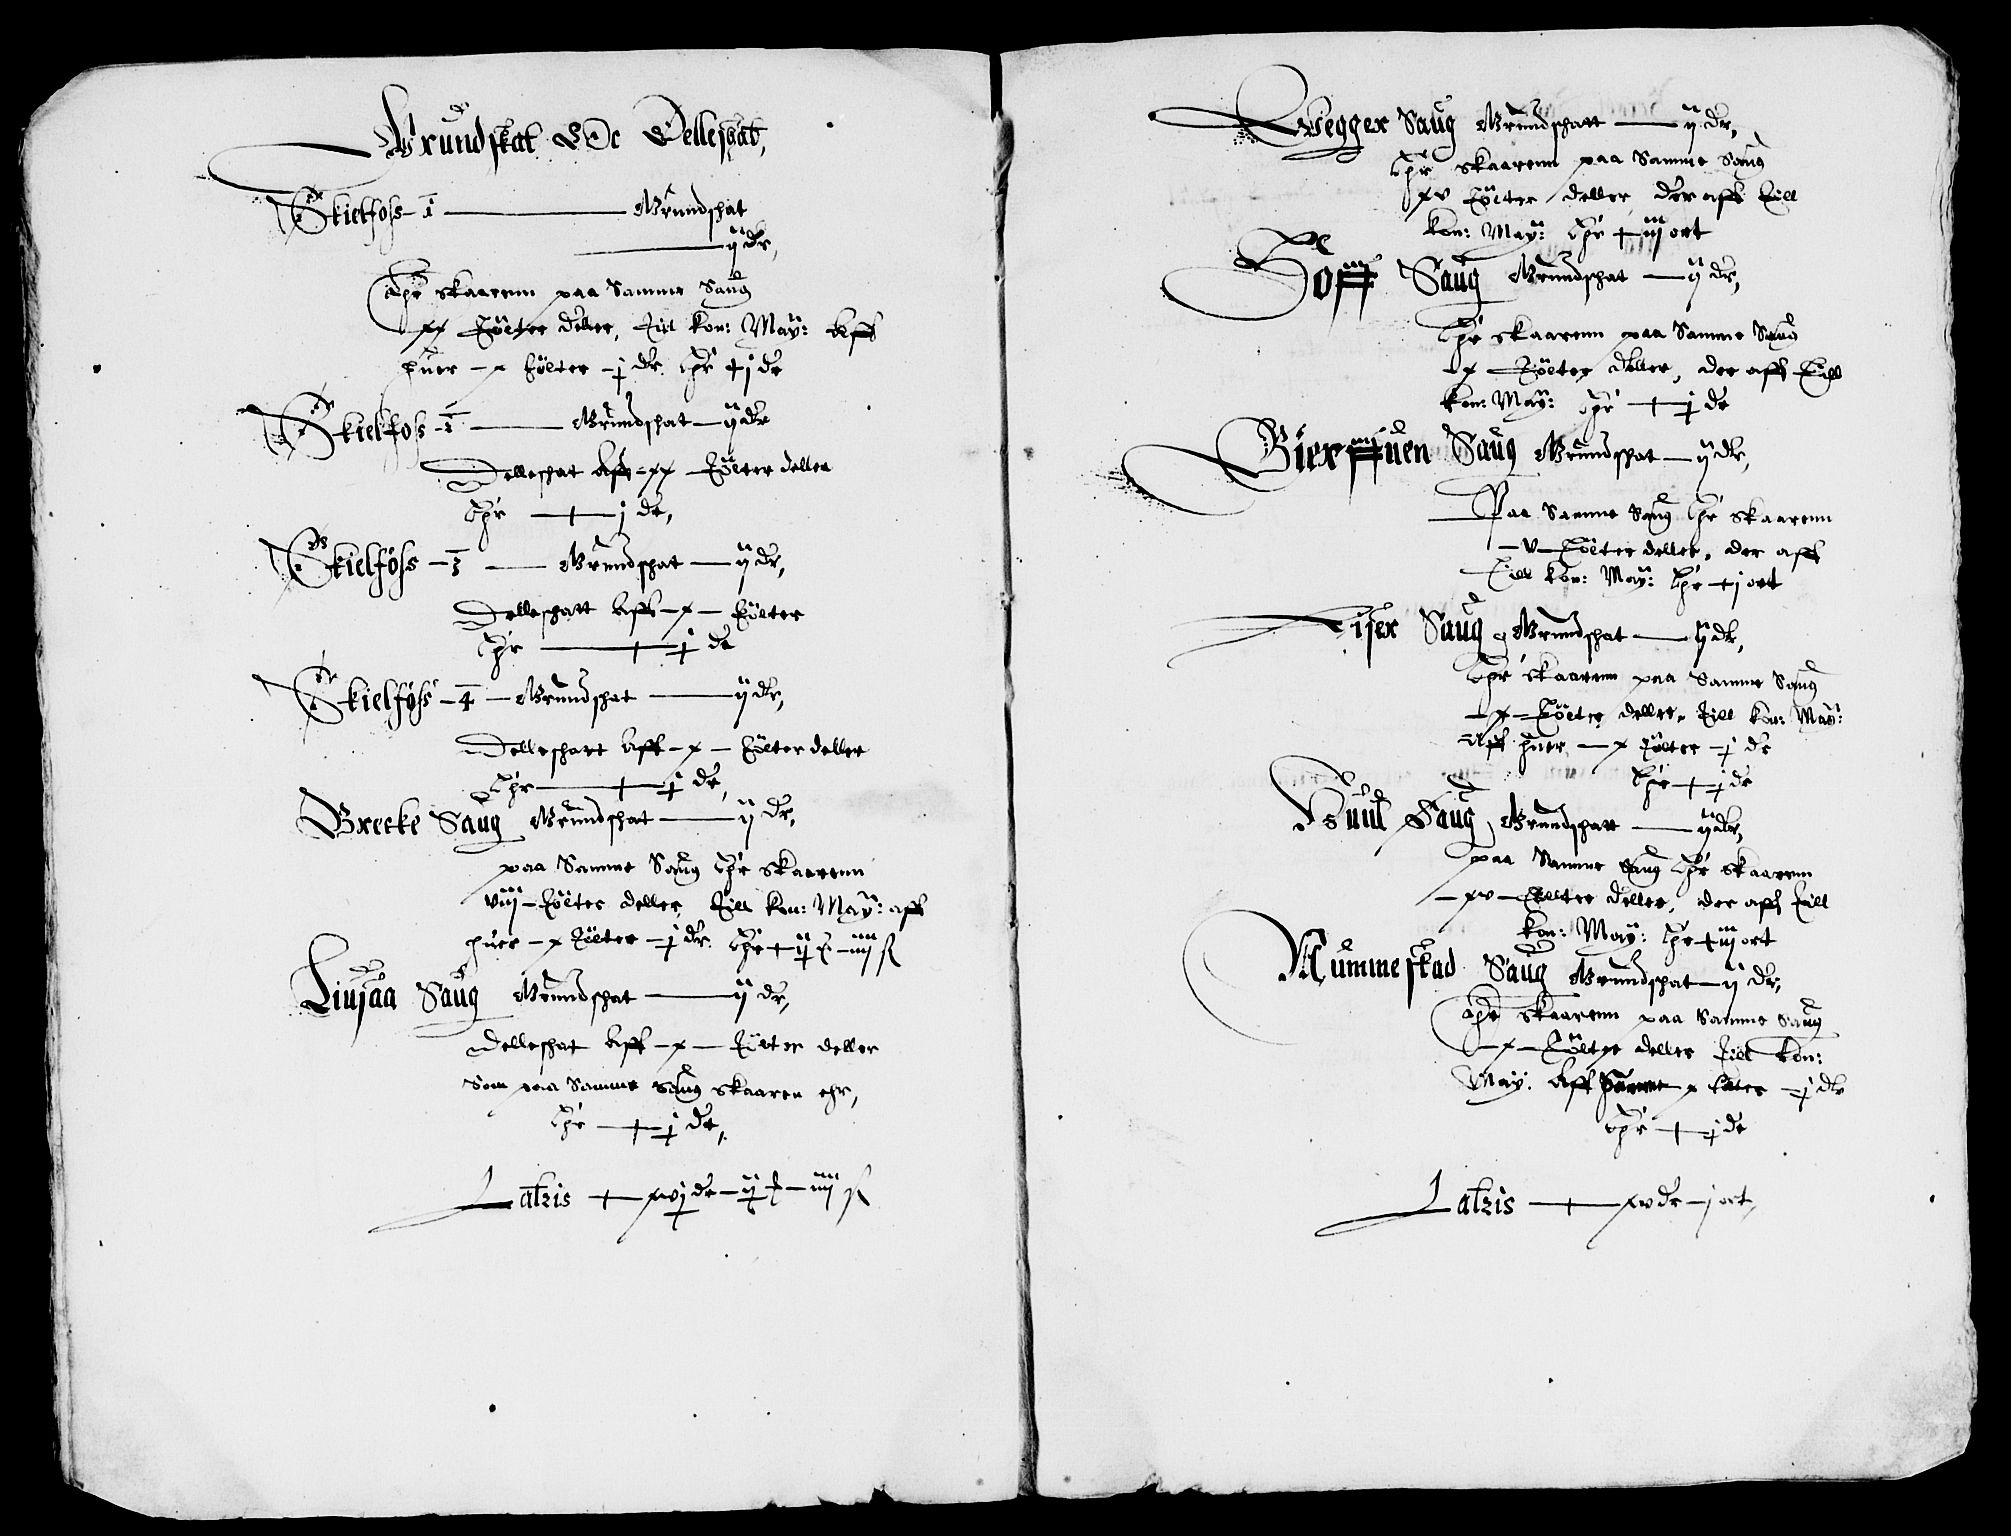 Grundskat Och Delleskat,
Skielfoss - 1 Grundschat
ij dr,
Ehr skaarenn paa Samme Saug
xx Tölter deller, Till kon: May: Aff
huer - x tölter - j dr Ehr + ij dr
Skielfos - 2 Grundschat ij dr
Delleschat Aff - xx - Tölter deller
Ehr + ij dr,
Skielföss - 3 Grundschat ij dr,
Delleschatt Aff - x - Tölter
Ehr + j dr
Skielföss - 4 - Grundschat ij dr,
Delleschatt Aff - x - tölter deller
Ehr + j dr,
Brecke Saug Grundschat ij dr,
paa Samme Saug Ehr skaarenn
viij - Tölter deller, Till kon: May: aff
huer - x Tölter - j dr. Ehr + iij ort - iiij ß
Liusaa Saug Grundschat ij dr,
Delleschat Aff - x - Tölter deller
Som paa Samme Saug skaaren ehr,
Ehr + j dr,
Latris + xvj dr - iij ort - iiij ß
Vegger Saug Grundschatt ij dr,
Ehr skaarenn paa Samme Saug
xv Tölter deller, der aff Till
kon: May: Ehr + vj ort
Hoff Saug Grundschat ij dr,
Ehr skaarenn paa Samme Saug
- x - Tölter deller, der aff Till
kon: May: Ehr + j dr
Saug Grundschat ij dr,
Paa Samme Saug Ehr skaarenn
- v - Tölter deller, der aff
Till kon: May: Ehr + ij ort
Saug Grundschat ij dr,
Ehr skaarenn paa Samme Saug
- x - Tölter deller, Till kon: May:
Aff huer - x Tölter - j dr
Ehr + j dr
Saug Grundschatt ij dr,
paa Samme Saug Ehr skaarenn
- xv - Tellter deller, der aff Till
kon: May: Ehr + vj ort
Mummeskad Saug Grundschat ij dr,
Ehr skaarenn paa Samme Saug
- x - Tölter deller Till kon:
May: Aff x tölter - j dr
Ehr + j dr
Latris + dr - ort,